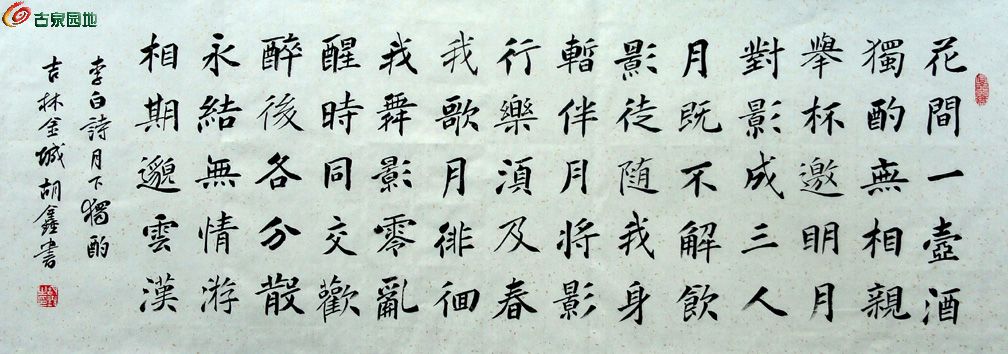 古泉园地
花間一壺酒
獨酌無相親
舉杯邀明月
對影成三人
月既不解飲
影徒随我身
暫伴月將影
行樂須及春
我歌月徘徊
我舞影零亂
醒時同交歡
醉後各分散
永結無情游
相期邈雲漢
李白詩月下獨酌
吉林金城胡鑫書